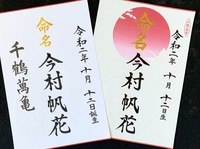 命名
今村帆花
令和二年十月十二日誕生
千鶴萬亀
命名
今村帆花
令和二年十月十二日生